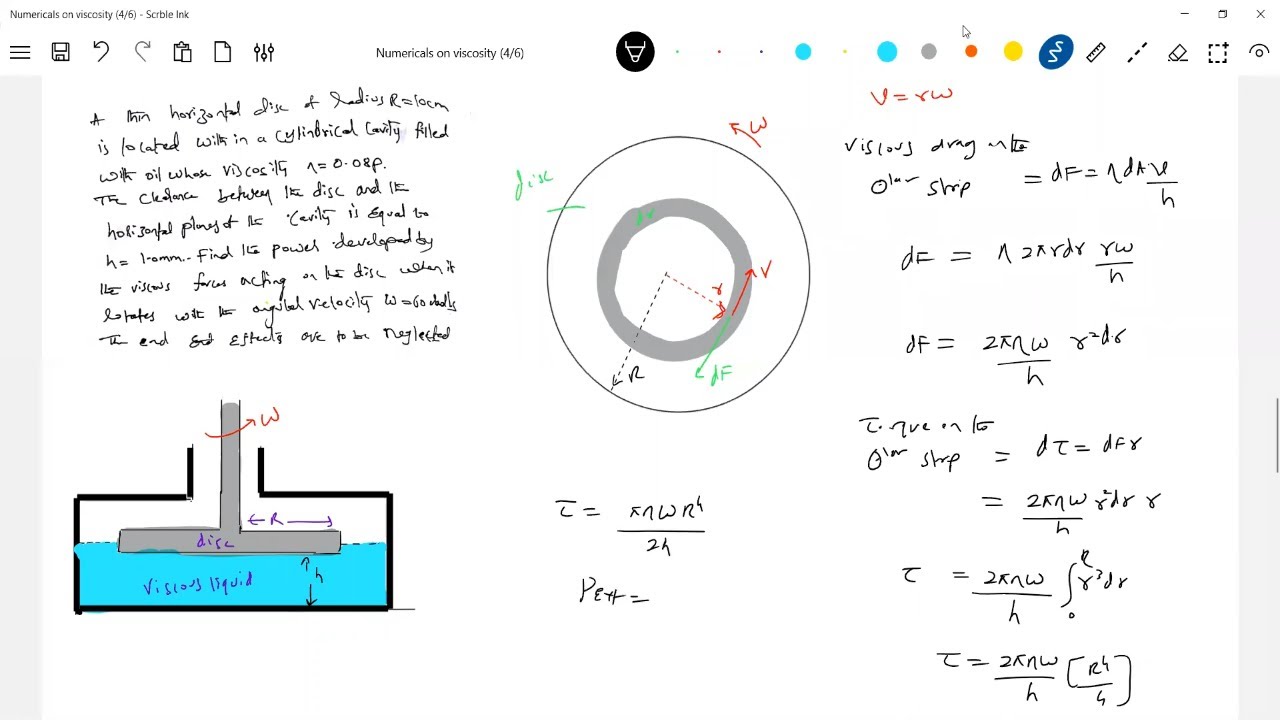 Numericals on viscosity (4/6) - Scrble Ink
Numericals on viscosity (4/6)
A thin horizontal disc of radius R = 10cm
is located with in a cylindrical cavity filled
with oil whose viscosity η = 0.08p.
The clearance between the disc and the
horizontal planes of the cavity is equal to
h = 1.0mm. Find the power developed by
the viscous forces acting on the disc when it
rotates with the angular velocity ω = 60 rad/s
The end effects are to be neglected
ω
R
disc
h
viscous liquid
disc
ω
dr
r
v
R
dF
τ = πηωR⁴/2h
P_ext =
v = rω
viscous drag on the
θlar strip = dF = η dA v/h
dF = η 2πrdr rω/h
dF = 2πηω/h r²dr
Torque on the
θlar strip = dτ = dF r
= 2πηω/h r²dr r
τ = 2πηω/h ∫₀ᴿ r³dr
τ = 2πηω/h [R⁴/4]